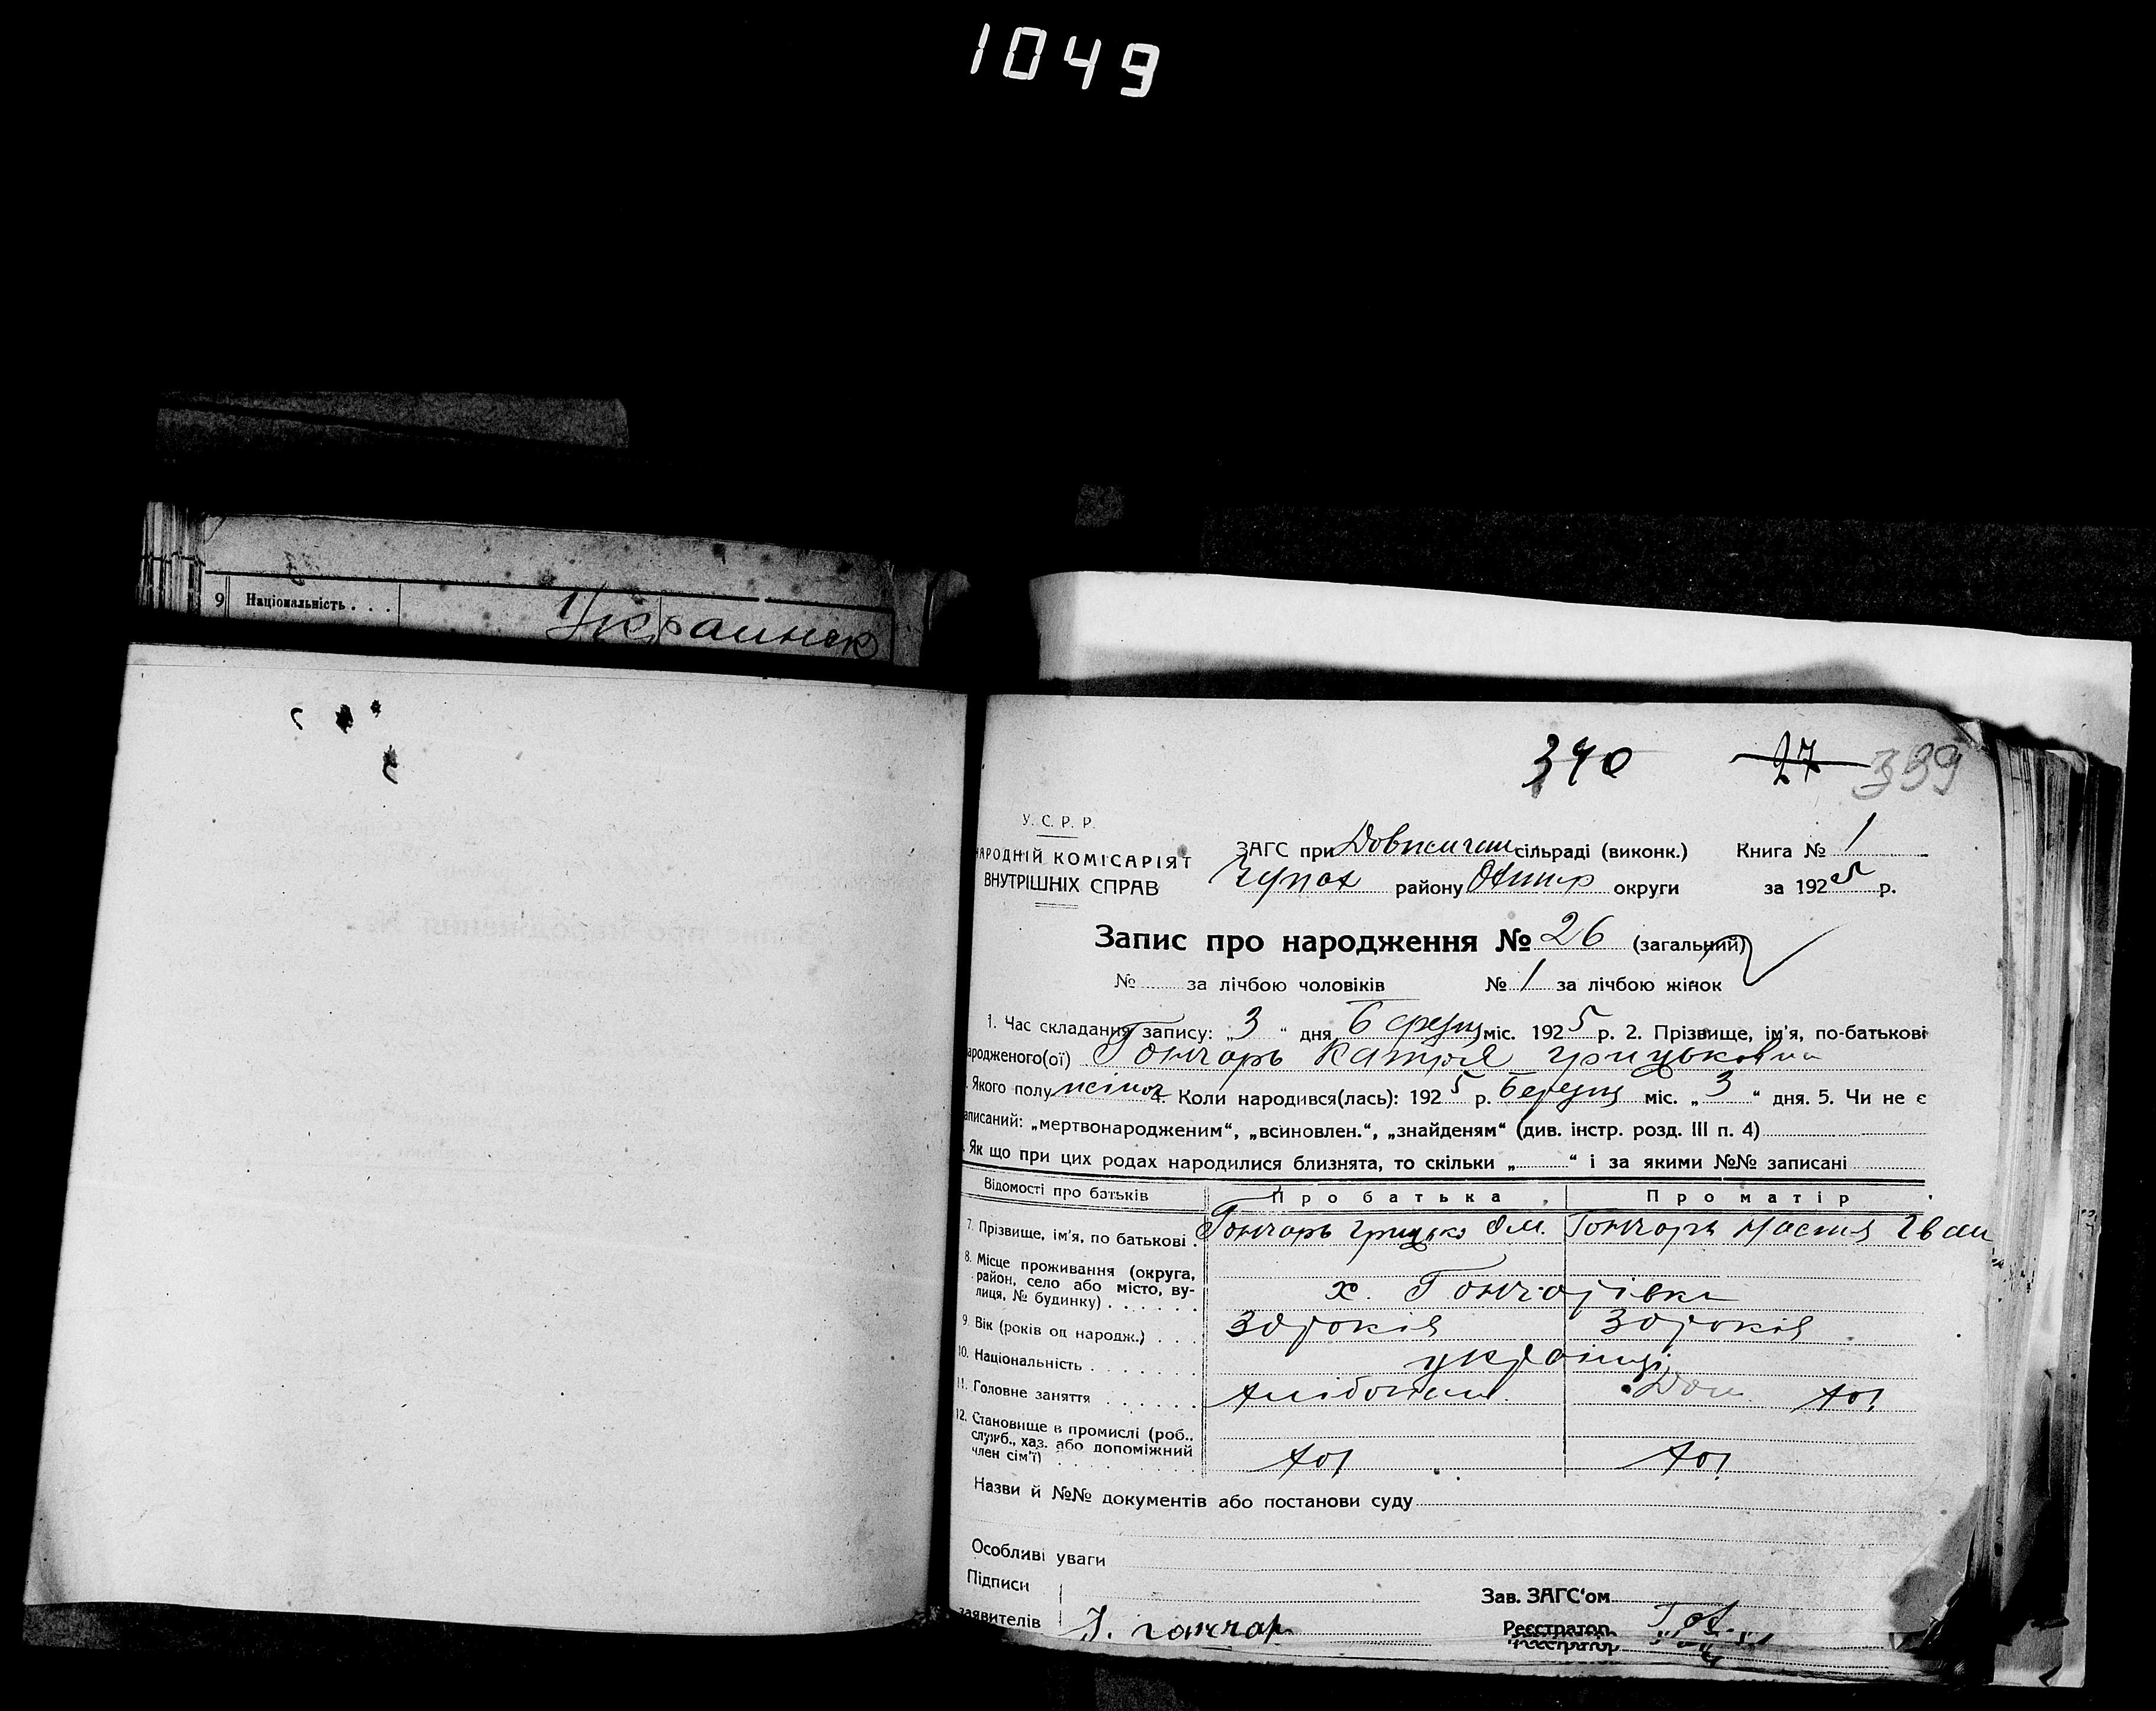 1049
9 Національність . . .
Украинск
340 27 339
У. С. Р. Р.
НАРОДНІЙ КОМІСАРІЯТ
ВНУТРІШНІХ СПРАВ
ЗАГС при сільраді (виконк.) Книга № 1
Чупах району Охтир округи за 1925 р.
Запис про народження № 26 (загальний)
№ за лічбою чоловіків № 1 за лічбою жінок
1. Час складання запису: „3“ дня березня міс. 1925 р. 2. Прізвище, ім'я, по-батькові
ародженого(ої) Гончарь Катря Грицьковна
Якого полу жіноч. Коли народився(лась): 1925 р. березня міс. „3“ дня. 5. Чи не є
аписаний: „мертвонародженим“, „всиновлен.“, „знайденям“ (див. інстр. розд. III п. 4)
Як що при цих родах народилися близнята, то скільки „ “ і за якими №№ записані
Відомості про батьків Про батька Про матір
7. Прізвище, ім'я, по батькові . Гончарь Грицько Ом. Гончарь Настя Іван
8. Місце проживання (округа,
район, село або місто, ву-
лиця, № будинку) . . . . . .
х. Гончарівка
9. Вік (років од народж.) . . . 30 років 30 років
10. Національність . . . . . . українці
11. Головне заняття . . . . . . хлібопаш. Дом. хоз
12. Становище в промислі (роб.,
служб., хаз. або допоміжний
член сім'ї) . . . . . . . . . хоз хоз
Назви й №№ документів або постанови суду
Особливі уваги
Підписи
заявителів
Г. гончар
Зав. ЗАГС'ом
Реєстратор